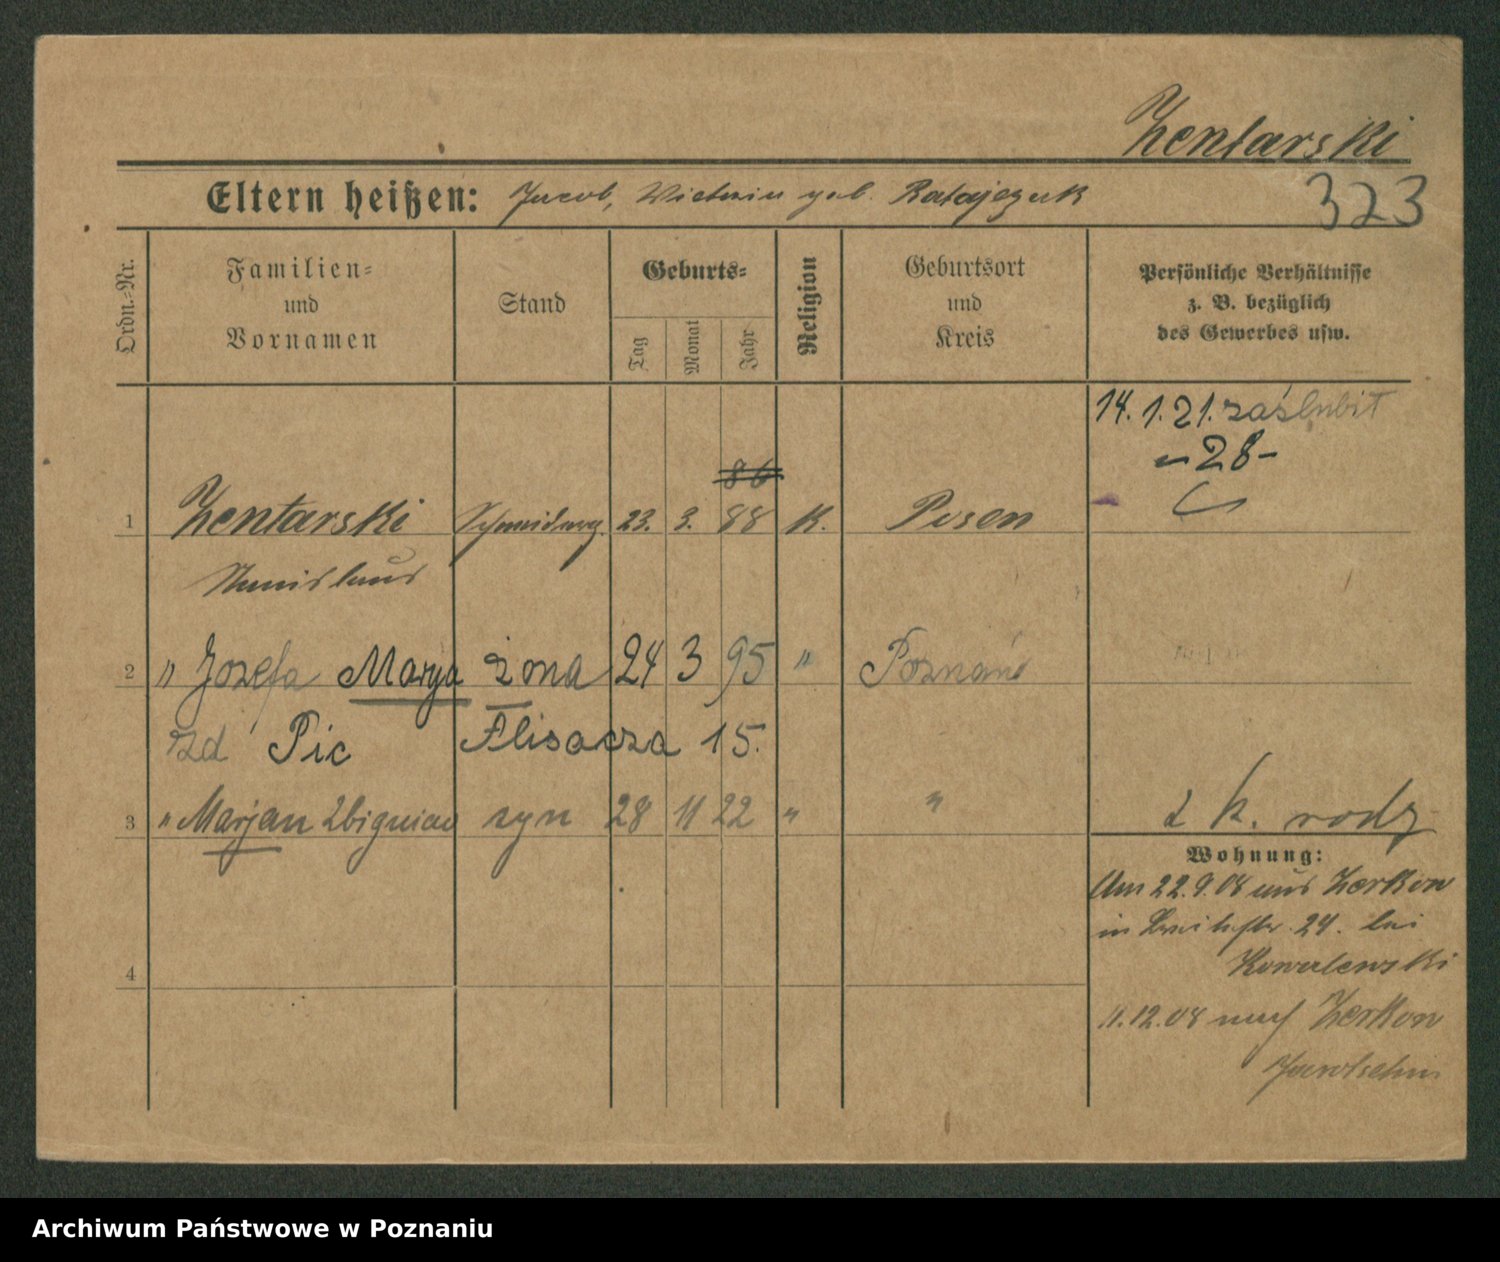 Zentarski
Eltern heißen: Jacob, Victoria geb. Ratajczak
323
Ordn.-Nr.
Familien-
und
Vornamen
Stand
Geburts-
Tag
Monat
Jahr
Religion
Geburtsort
und
Kreis
Persönliche Verhältnisse
z. B. bezüglich
des Gewerbes usw.
14. 1. 21. zaślubił
-28-
86
1 Zentarski Schneiderg. 23. 3. 88 K. Posen
Stanislaus
2 " Jozefa Marya żona 24 3 95 " Poznań
zd Pic Flisacza 15.
3 " Marjan Zbigniew syn 28 11 22 " "
z k. rodz
4
Wohnung:
Am 22.9.08 aus Zerkow
in Breitestr. 24. bei
Kowalewski
11.12.08 nach Zerkow
Jarotschin
Archiwum Państwowe w Poznaniu